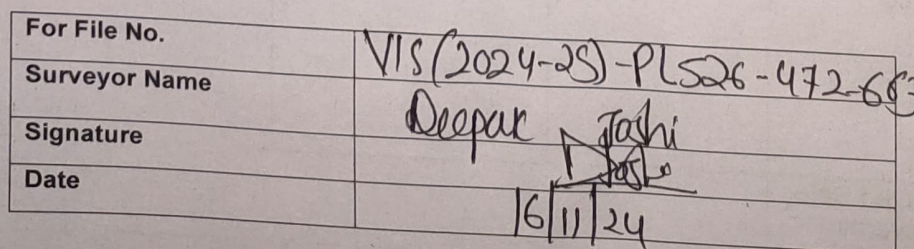 For File No. VIS(2024-25)-PL526-472-6
Surveyor Name Deepak Joshi
Signature Joshi
Date 16/11/24